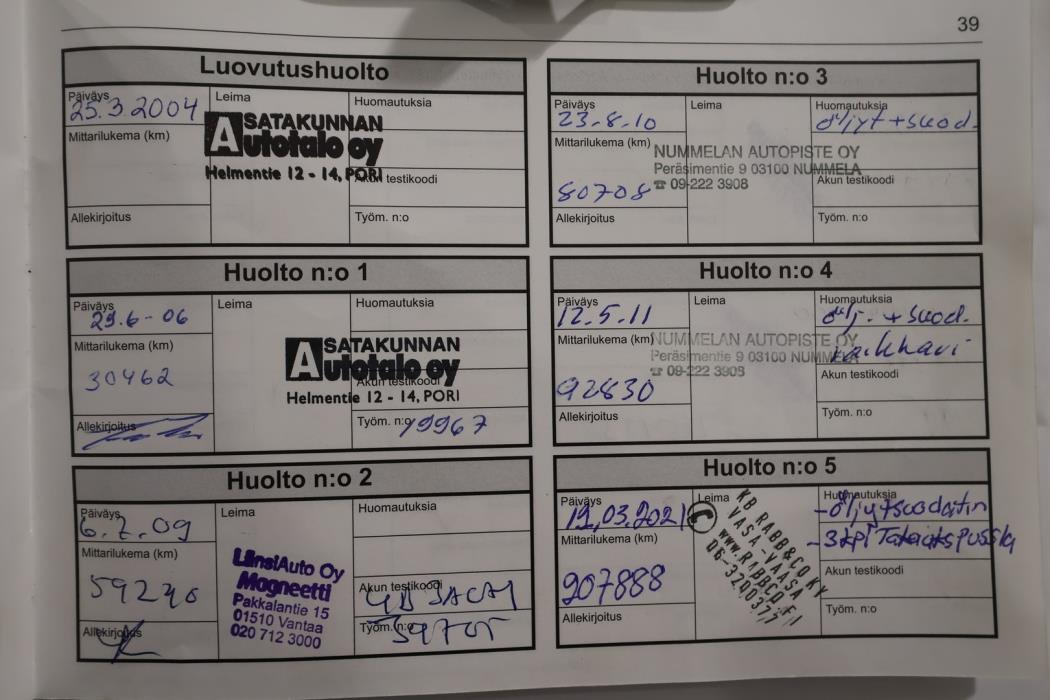 39
Luovutushuolto
Päiväys
25.3.2004
Leima
Huomautuksia
Mittarilukema (km)
SATAKUNNAN
Autotalo oy
Helmentie 12 - 14, PORI
Akun testikoodi
Allekirjoitus
Työm. n:o
Huolto n:o 1
Päiväys
29.6-06
Leima
Huomautuksia
Mittarilukema (km)
30462
SATAKUNNAN
Autotalo oy
Helmentie 12 - 14, PORI
Akun testikoodi
Allekirjoitus
Työm. n:o 19967
Huolto n:o 2
Päiväys
6.7.09
Leima
Huomautuksia
Mittarilukema (km)
LänsiAuto Oy
Magneetti
Pakkalantie 15
01510 Vantaa
020 712 3000
Akun testikoodi
Allekirjoitus
Työm. n:o
Huolto n:o 3
Päiväys
23.8.10
Leima
Huomautuksia
öljyt+suod.
Mittarilukema (km)
80708
NUMMELAN AUTOPISTE OY
Peräsimentie 9 03100 NUMMELA
☎ 09-222 3908
Akun testikoodi
Allekirjoitus
Työm. n:o
Huolto n:o 4
Päiväys
12.5.11
Leima
Huomautuksia
öлj. + suod.
Mittarilukema (km)
92830
NUMMELAN AUTOPISTE OY
Peräsimentie 9 03100 NUMMELA
☎ 09-222 3908
Akun testikoodi
Allekirjoitus
Työm. n:o
Huolto n:o 5
Päiväys
19,03.2021
Leima
Huomautuksia
-öljyt+suodatin
-3kpl
Mittarilukema (km)
207888
KB RABB&CO KY
VASA-VAASA
www.RABBCO.FI
06-3200377
Akun testikoodi
Allekirjoitus
Työm. n:o